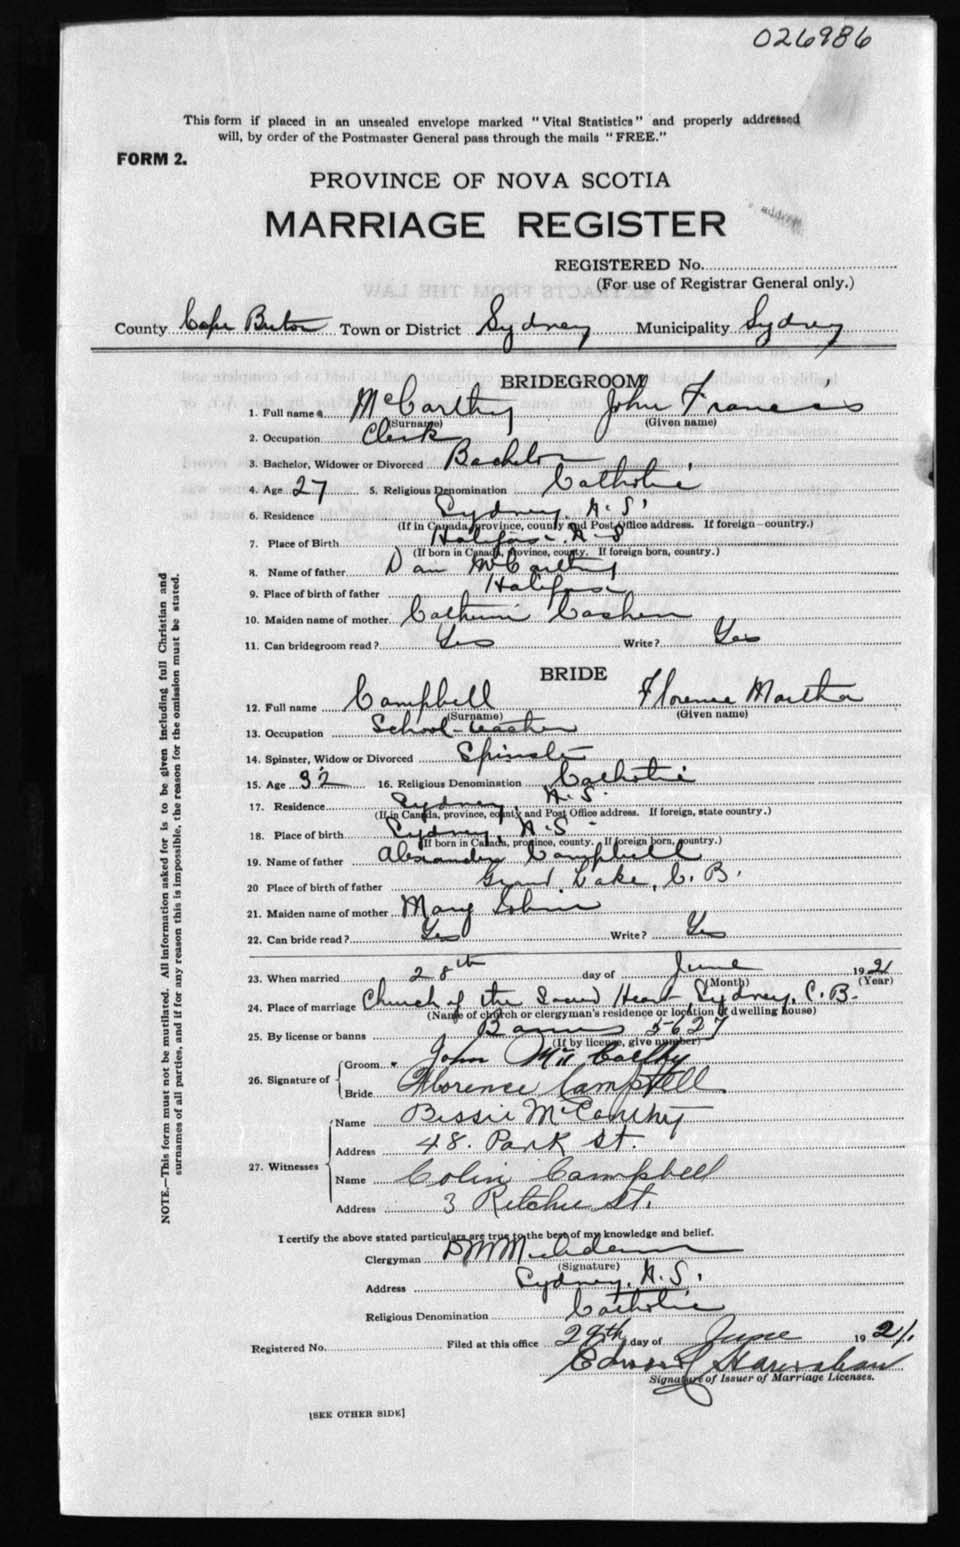 026986
This form if placed in an unsealed envelope marked "Vital Statistics" and properly addressed
will, by order of the Postmaster General pass through the mails "FREE."
FORM 2.
PROVINCE OF NOVA SCOTIA
MARRIAGE REGISTER
REGISTERED No.
(For use of Registrar General only.)
County Cape Breton Town or District Sydney Municipality Sydney
BRIDEGROOM
1. Full name McCarthy John Francis
(Surname) (Given name)
2. Occupation Clerk
3. Bachelor, Widower or Divorced Bachelor
4. Age 27 5. Religious Denomination Catholic
6. Residence Sydney, N.S.
(If in Canada, province, county and Post Office address. If foreign—country.)
7. Place of Birth Halifax N.S
(If born in Canada, province, county. If foreign born, country.)
8. Name of father Dan McCarthy
9. Place of birth of father Halifax
10. Maiden name of mother Catherine Cashen
11. Can bridegroom read? Yes Write? Yes
BRIDE
12. Full name Campbell Florence Martha
(Surname) (Given name)
13. Occupation School-teacher
14. Spinster, Widow or Divorced Spinster
15. Age 32 16. Religious Denomination Catholic
17. Residence Sydney, N.S.
(If in Canada, province, county and Post Office address. If foreign, state country.)
18. Place of birth Sydney, N.S
(If born in Canada, province, county. If foreign born, country.)
19. Name of father Alexander Campbell
20 Place of birth of father Grand Lake, C.B.
21. Maiden name of mother Mary
22. Can bride read? Yes Write? Yes
23. When married 28th day of June 1921
(Month) (Year)
24. Place of marriage Church of the Sacred Heart, Sydney, C.B.
(Name of church or clergyman's residence or location of dwelling house)
25. By license or banns Banns 5627
(If by license, give number)
26. Signature of Groom John McCarthy
Bride Florence Campbell
27. Witnesses Name Bessie McCarthy
Address 48. Park St.
Name Colin Campbell
Address 3 Ritchie St.
I certify the above stated particulars are true to the best of my knowledge and belief.
Clergyman
(Signature)
Address Sydney, N.S.
Religious Denomination Catholic
Registered No. Filed at this office 29th day of June 1921.
Signature of Issuer of Marriage Licenses.
[SEE OTHER SIDE]
NOTE.—This form must not be mutilated. All information asked for is to be given including full Christian and
surnames of all parties, and if for any reason this is impossible, the reason for the omission must be stated.